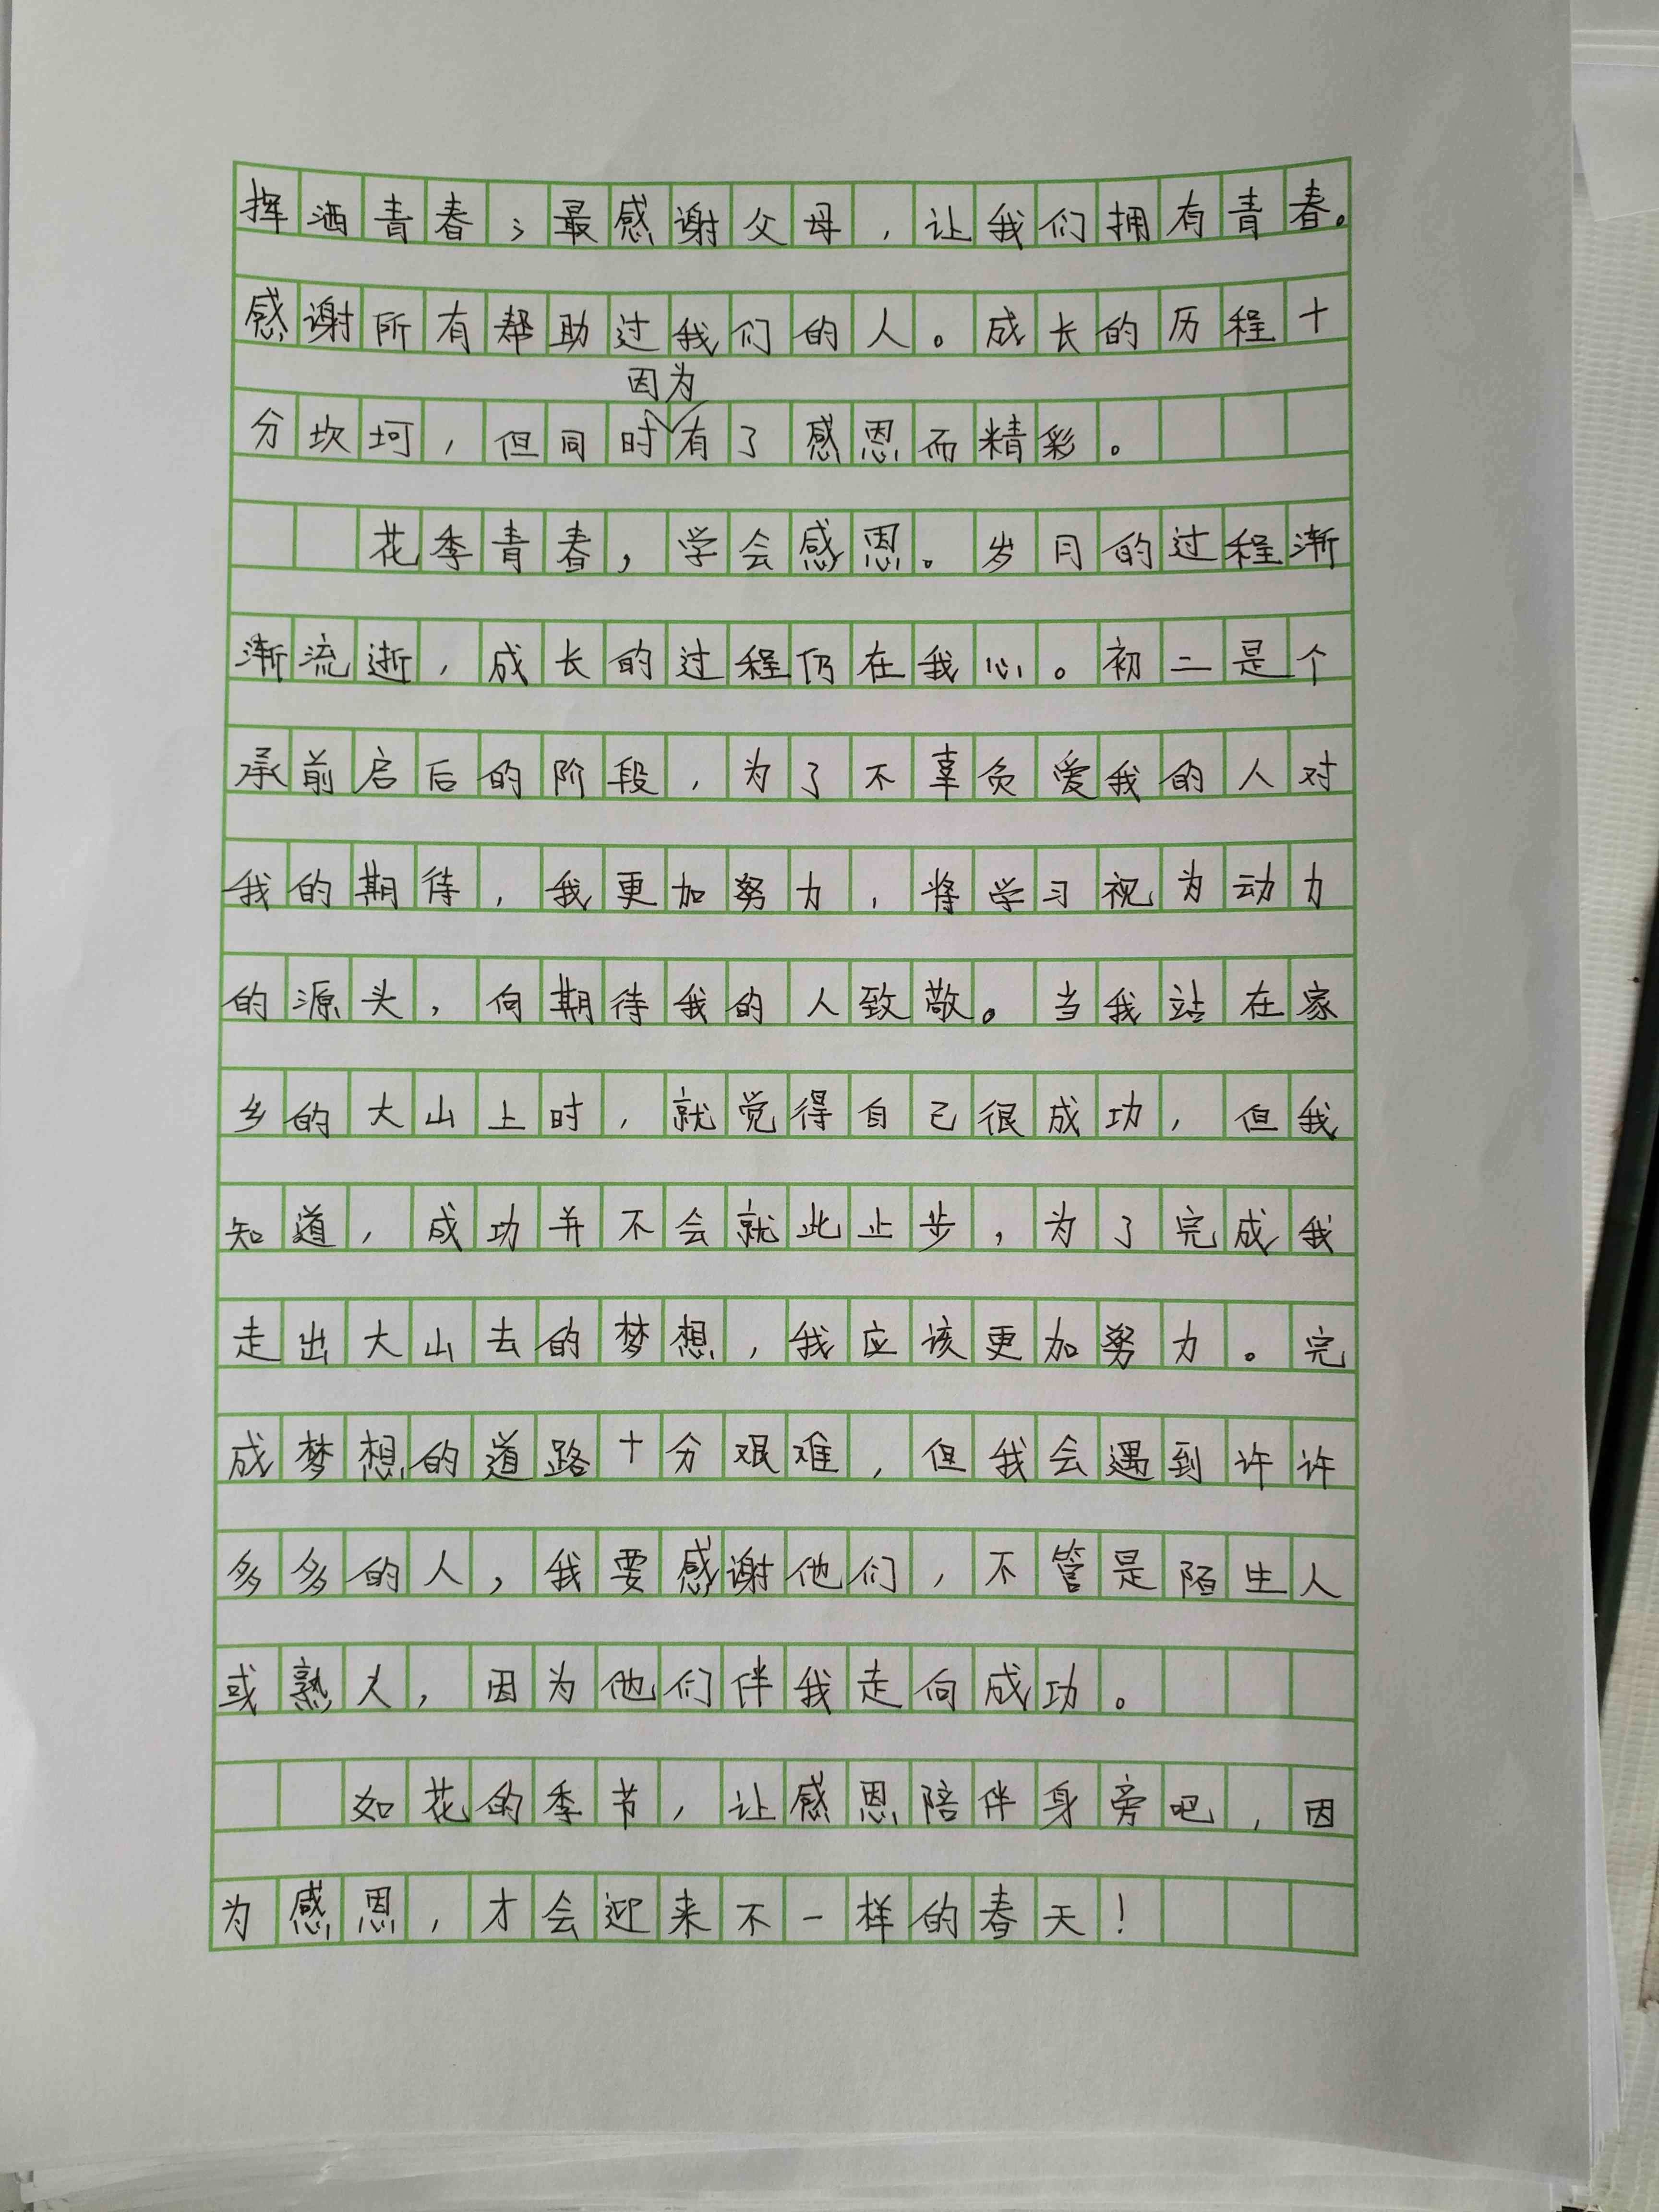 挥洒青春；最感谢父母，让我们拥有青春。
感谢所有帮助过我们的人。成长的历程十
因为
分坎坷，但同时有了感恩而精彩。
花季青春，学会感恩。岁月的过程渐
渐流逝，成长的过程仍在我心。初二是个
承前启后的阶段，为了不辜负爱我的人对
我的期待，我更加努力，将学习视为动力
的源头，向期待我的人致敬。当我站在家
乡的大山上时，就觉得自己很成功，但我
知道，成功并不会就此止步，为了完成我
走出大山去的梦想，我应该更加努力。完
成梦想的道路十分艰难，但我会遇到许许
多多的人，我要感谢他们，不管是陌生人
或熟人，因为他们伴我走向成功。
如花的季节，让感恩陪伴身旁吧，因
为感恩，才会迎来不一样的春天！